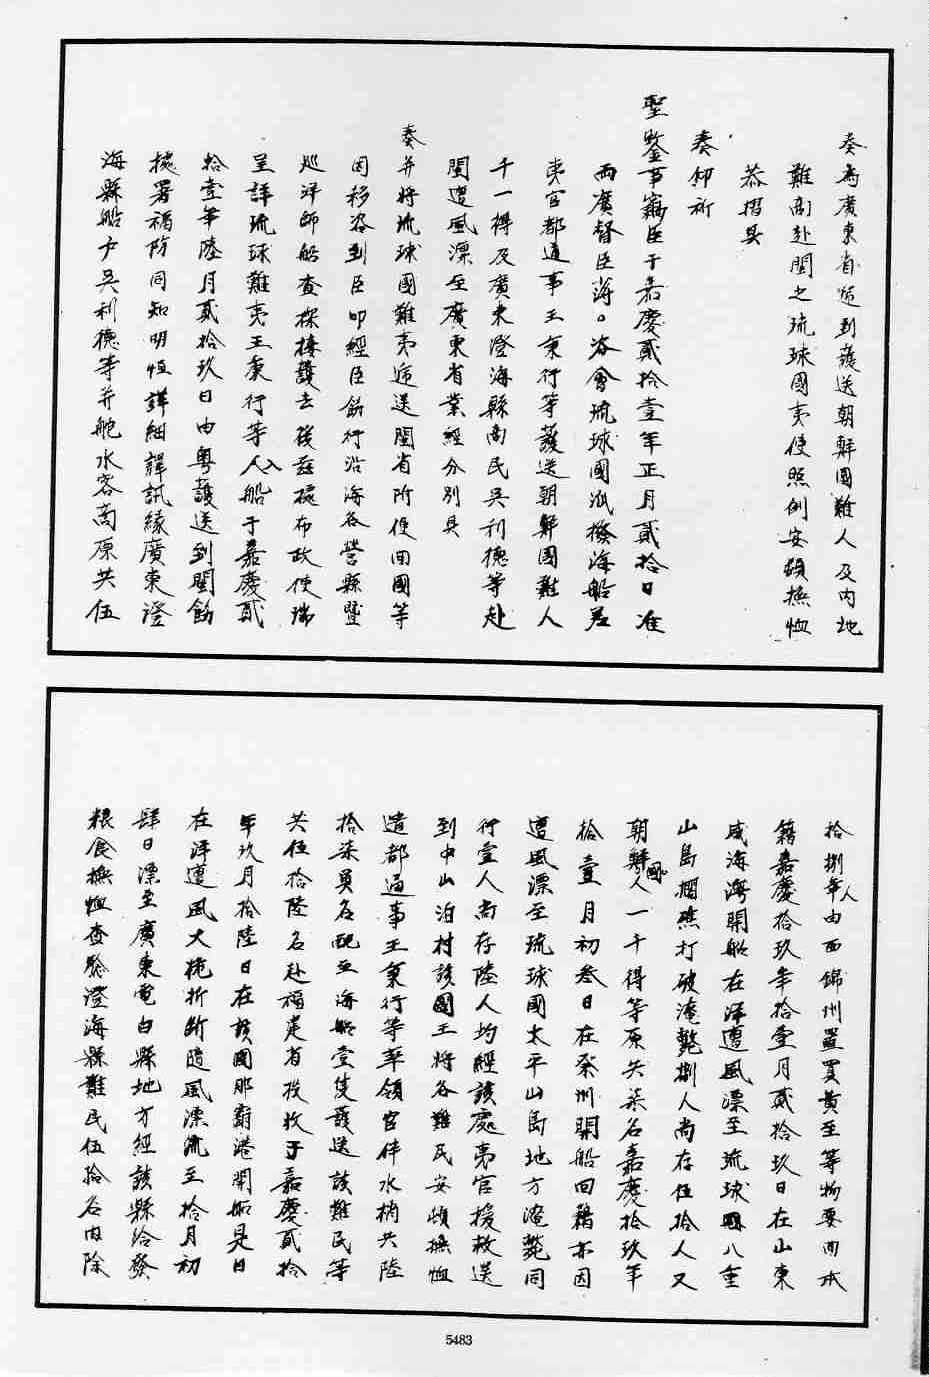 奏為廣東省遞到護送朝鮮國難人及內地
難商赴閩之琉球國夷使照例安頓撫恤
恭摺具
奏仰祈
聖鑒事竊臣于嘉慶貳拾壹年正月貳拾日准
兩廣督臣蔣。咨會琉球國派撥海船差
夷官都通事王秉行等護送朝鮮國難人
千一得及廣東澄海縣商民吳利德等赴
閩遭風漂至廣東省業經分別具
奏并將琉球國難夷遞送閩省附便回國等
因移咨到臣即經臣飭行沿海各營縣暨
巡洋師船查探接護去後茲據布政使瑞
呈詳琉球難夷王秉行等人入船于嘉慶貳
拾壹年陸月貳拾玖日由粵護送到閩飭
據署福防同知明恒詳細譯訊緣廣東澄
海縣船户吳利德等并舵水客商原共伍
拾捌年人由西錦州置買黃荳等物要回本
籍嘉慶拾玖年拾壹月貳拾玖日在山東
威海海開船在洋遭風漂至琉球國八重
山島擱礁打破淹斃捌人尚存伍拾人又
朝鮮國人一千得等原共柒名嘉慶拾玖年
拾壹月初叁日在 州開船回籍亦因
遭風漂至琉球國太平山島地方淹斃同
行壹人尚存陸人均經該處夷官援救送
到中山泊村該國王將各難民安頓撫恤
遣都通事王秉行等率領官伴水梢共陸
拾柒員名配坐海船壹隻護送該難民等
共伍拾陸名赴福建省投收于嘉慶貳拾
年玖月拾陸日在該國那霸港開船是日
在洋遭風大桅折斷隨風漂流至拾月初
肆日漂至廣東電白縣地方經該縣給發
糧食撫恤查驗澄海縣難民伍拾名內除
5483